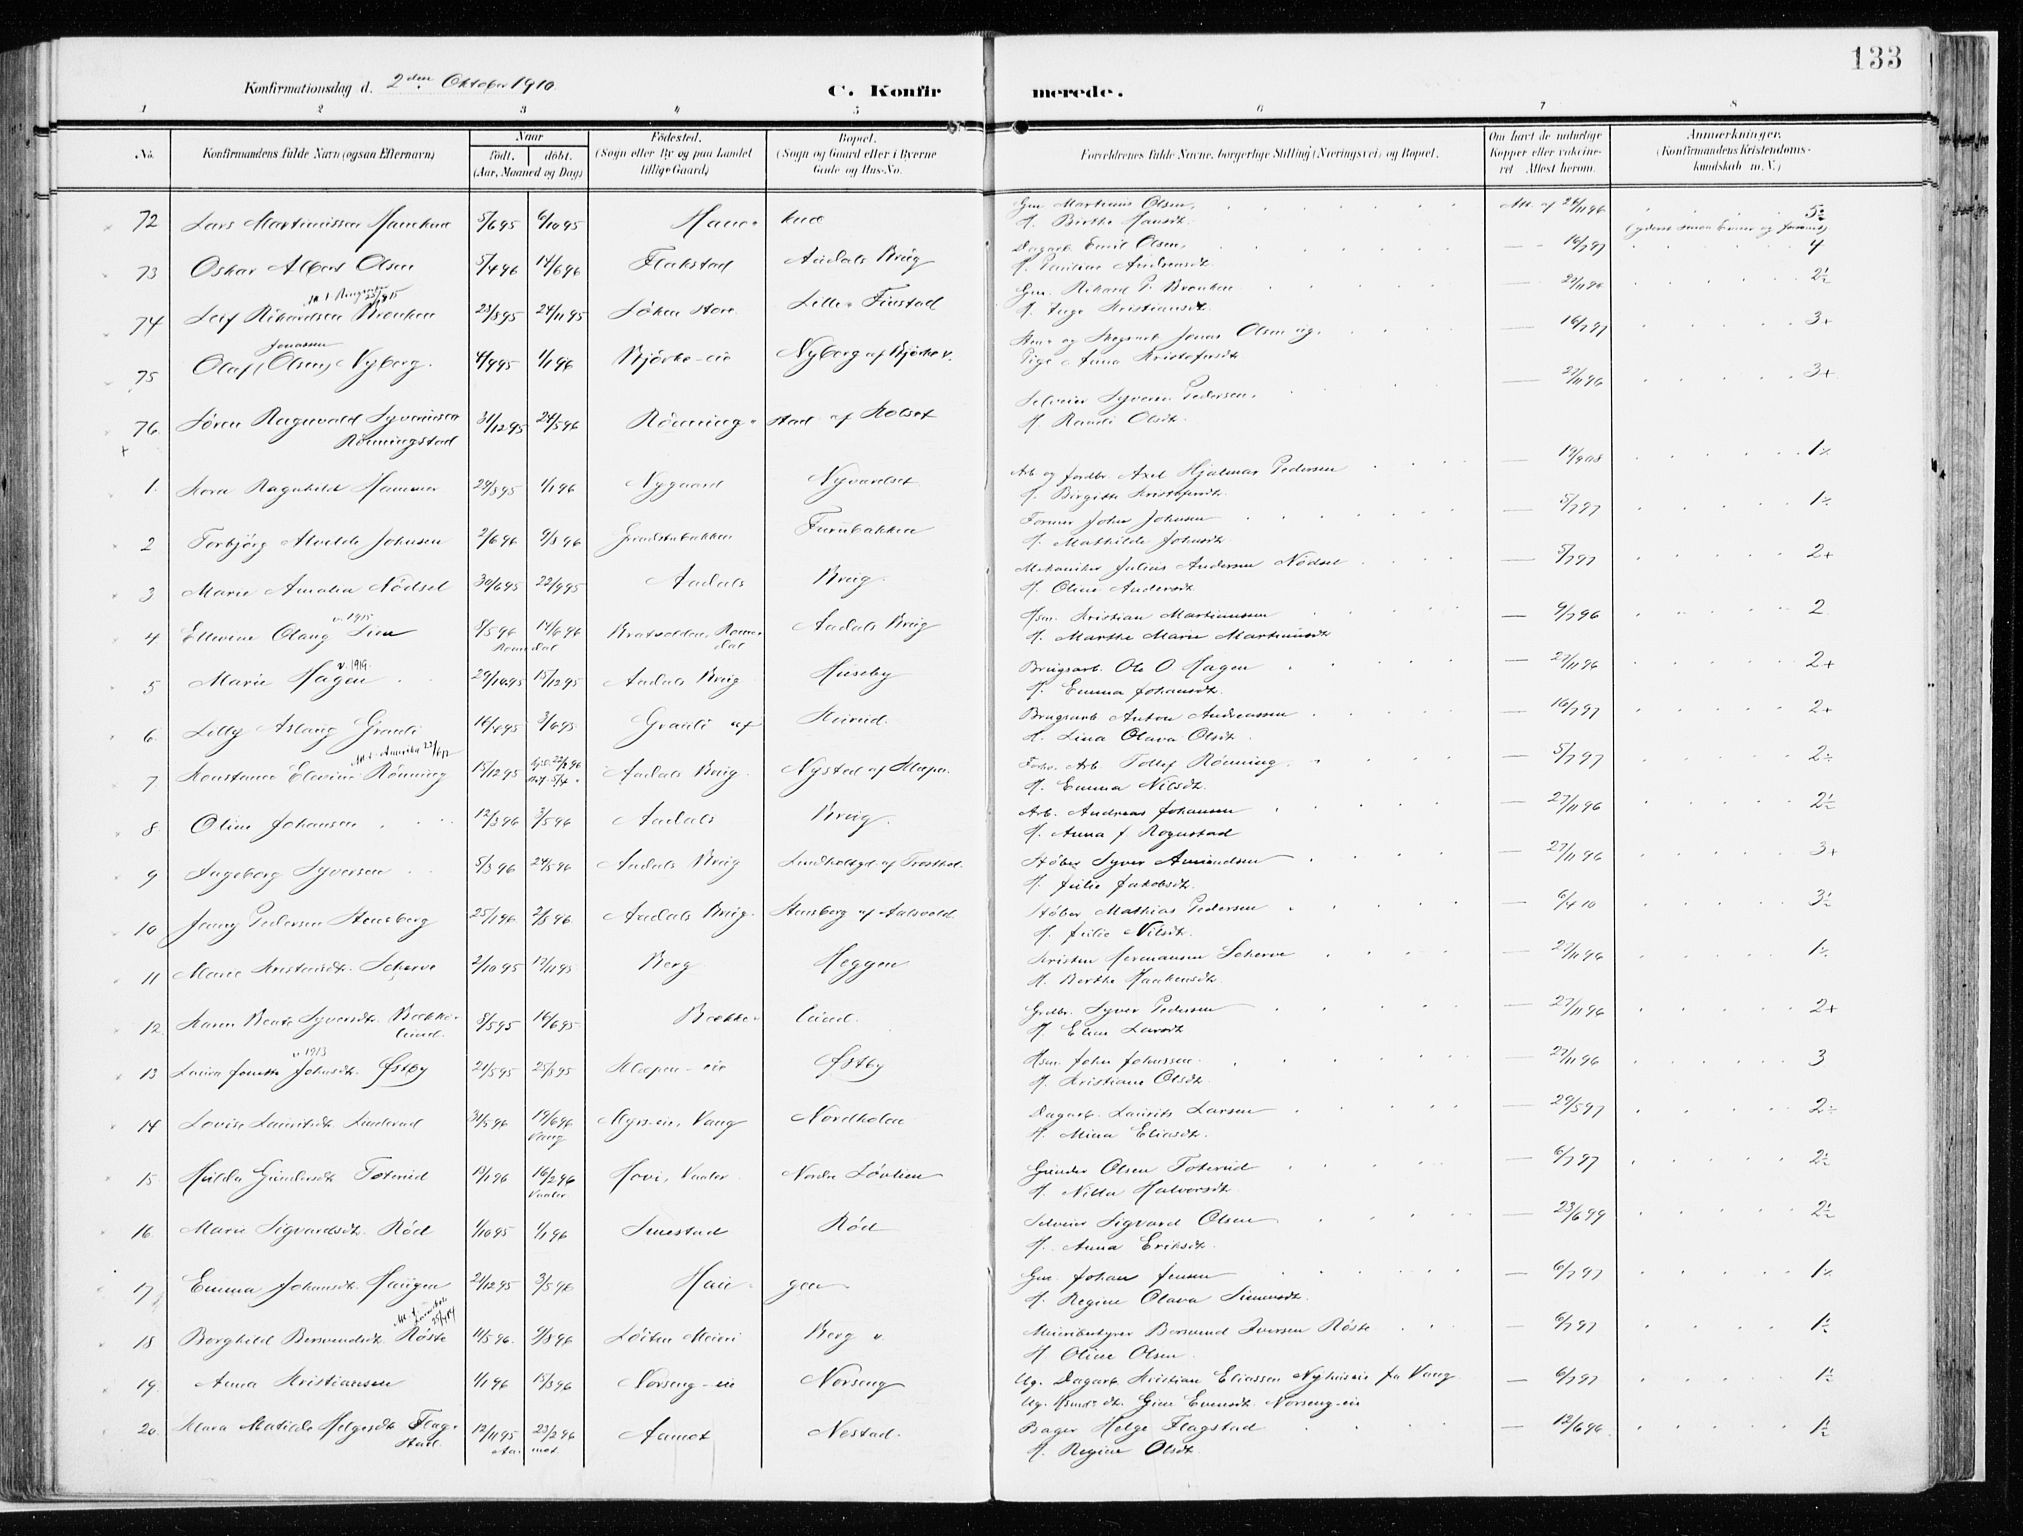 133
Konfirmationsdag d. 2den Oktober 1910
C. Konfirmerede.
1 2 3 4 5 6 7 8
No. Konfirmandens fulde Navn (ogsaa Efternavn) Naar født. døbt. (Aar, Maaned og Dag) Fødested. (Sogn eller By og paa Landet tillige Gaard) Bopæl. (Sogn og Gaard eller i Byerne Gade og Hus-No. Forældrenes fulde Navne, borgerlige Stilling (Næringsvei) og Bopæl. Om havt de naturlige Kopper eller vakcineret. Attest herom. Anmærkninger. (Konfirmandens Kristendomskundskab m. V.)
72 Lars Martinussen 5/6 95 6/10 95 Gm. Martinus Olsen, Att. af 24/11 96
H. Birthe Hansdt.
73 Oskar Albert Olsen 5/4 96 14/6 96 Flakstad Aadals Brug Dagarb. Emil Olsen, — 16/7 97 4
H. Pauline Andreasdt.
74 Leif Rikardsen Brenken 23/8 95 24/11 95 Løken store Lille-Finstad Gm. Rikard P. Brenken — 27/11 96 2½
H. Inge Kristiansdt.
Jonassen
75 Olaf (Olsen) Nyberg. 4/9 95 1/1 96 Bjørke-eie Nyberg af Bjørke v. Jonas Olsen og — 16/7 97 3+
Pige Anna Kristofersdt.
76. Søren Ragnvald Syversen Rønningstad 31/12 95 24/5 96 Rønning-stad af Kolset Selveier Syver Pedersen, — 27/11 96 3+
H. Randi Olsdt.
1. Kora Ragnhild Hammer 29/8 95 1/1 96 Nygaard Nyvardset Arb. og fordbr. Axel Hjalmar Pedersen — 19/9 08 1÷
H. Birgitte Kristofersdt.
2 Torbjørg Alvilde Johnsen 2/6 96 9/8 96 Grindstubakken Furubakken Former John Johnsen — 5/7 97 1÷
H. Mathilde Johnsdt.
3 Marie Amalia Nødset 30/6 95 22/9 95 Aadals Brug. Mekaniker Julius Andersen Nødset — 5/7 97 2+
H. Oline Andersdt.
v. 1915
4 Ellevine Olaug Lien 8/5 96 14/6 96 Romedal Bratvolden, Romedal Aadals Brug Hsm. Kristian Martinussen — 9/7 96 2
H. Marthe Marie Martinusdt.
v. 1919.
5 Marie Hagen 29/10 95 15/12 95 Aadals Brug Huseby Brugsarb. Ole O. Hagen — 27/11 96 2+
H. Emma Johansdt.
6. Lilly Aslaug Grauli 16/4 95 3/6 95 Grauli af Kurud. Brugsarb. Anton Andreassen — 16/7 97 2+
H. Lina Olava Olsdt.
Att. t. Amerika 22/6 12
7. Konstance Elevine Rønning 15/12 95 Aadals Brug. Nysted af Klæpa. Arb. Tollef Rønning, — 5/7 97 2÷
H. Emma Nilsdt.
8. Oline Johansen 12/3 96 3/5 96 Aadals Brug. Arb. Andreas Johansen — 27/11 96 2½
H. Anna J. Rognstad
9 Ingeborg Syversen 5/3 96 24/5 96 Aadals Brug Støber Syver Amundsen — 27/11 96 3+
H. Julie Jakobsdt.
10 Jenny Pedersen Stensberg 25/1 96 2/8 96. Aadals Brug. Stensberg af Støber Mathias Pedersen — 6/4 10 3½
H. Julie Nilsdt.
11 Marie Kristensdt. Scherve 2/10 95 17/11 95 Berg Heggen Kristen Hermansen Scherve — 27/11 96 1÷
H. Berthe Haakensdt.
12. Karen Beate Syversdt. Bækkelund. 8/5 95 16/6 95 Bække-lund. Grdbr. Syver Pedersen — 27/11 96 2+
H. Eline Larsdt.
v 1913
13 Laura Josette Johnsdt. Østby 21/5 95 25/8 95 Klæpen-eie Østby Hsm. John Johnssen. — 27/11 96 3
H. Kristiane Olsdt.
14 Lovise Lauritsdt. Linderud 31/5 96 19/6 96 Vang Myrs-eie, Vang Nordholen Dagarb. Laurits Larsen — 29/5 97 2÷
H. Mina Eliasdt.
15 Hilda Gundersdt. Toterud 13/1 96 16/2 96 Vaaler Hovi, Vaaler Nordre Løvlien Gunder Olsen Toterud — 6/7 97 2½
H. Nilla Halvorsdt.
16. Marie Sigvardsdt. Rød 1/10 95 1/1 96 Imestad Rød Selveier Sigvard Olsen — 23/6 99 2½
H. Anna Eriksdt.
17 Emma Johansdt. Haugen 21/12 95 3/5 96 Hau-gen Gm. Johan Jensen — 6/7 97 1÷
H. Regine Olava Simensdt.
18 Borghild Bersvendsdt. Røste 11/5 96. 9/8 96 Løiten Meieri Berg v. Meieribestyrer Bersvend Iversen Røste — 6/7 97 1½
H. Oline Olsen.
19. Anna Kristiansen 1/1 96 15/3 96 Norseng-eie Norseng Ug. Dagarb. Kristian Eliassen Nyhuseie fra Vang — 6/7 97 1½
Ug. Gine Evensdt. Norseng-eie
20. Klara Matilde Helgesdt. Flagstad. 12/11 95 23/2 96 Aamot Aamot Nestad. Bager Helge Flagstad — 12/6 96. 1½
H. Regine Olsdt.